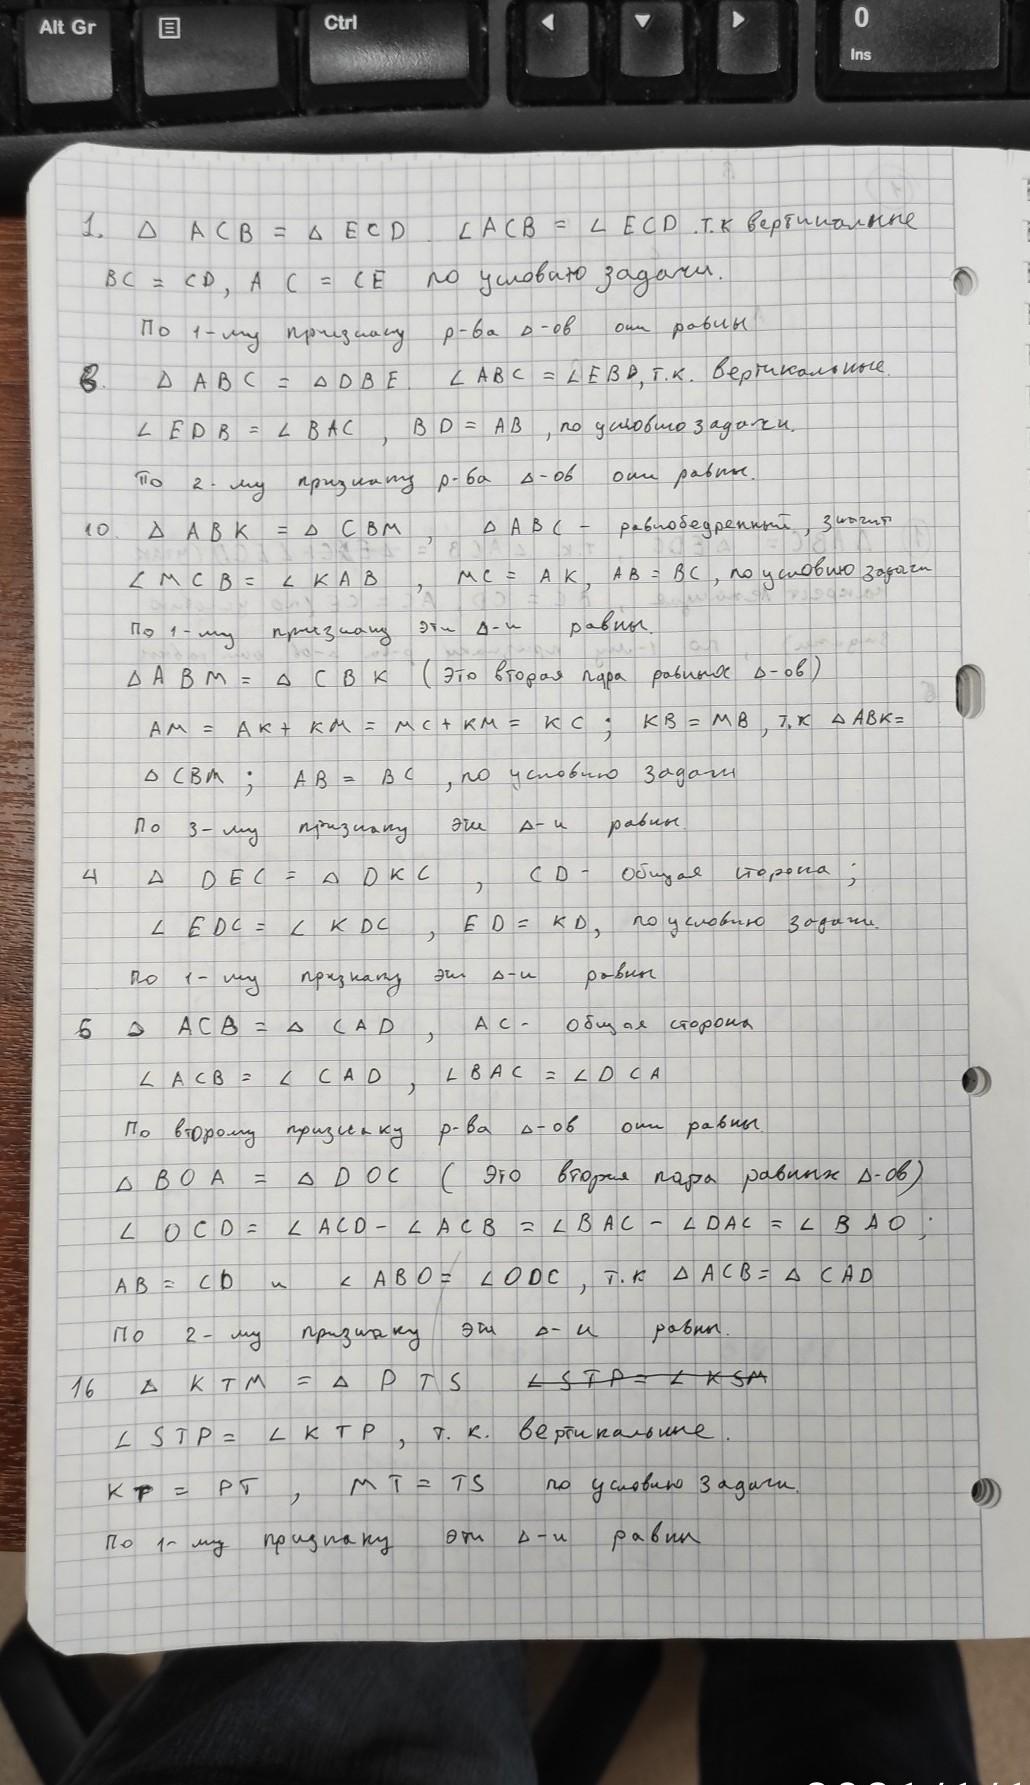 Alt Gr
Ctrl
0
Ins
1. △ ACB = △ ECD. ∠ACB = ∠ECD. т.к вертикальные
BC = CD, AC = CE по условию задачи.
По 1-му признаку р-ва △-ов они равны
8. △ ABC = △DBE. ∠ABC = ∠EBD, т.к. вертикальные.
∠EDB = ∠BAC, BD = AB, по условию задачи.
По 2-му признаку р-ва △-ов они равны.
10. △ ABK = △ CBM, △ABC - равнобедренный, значит
∠MCB = ∠KAB, MC = AK, AB = BC, по условию задачи
По 1-му признаку эти △-и равны.
△ABM = △ CBK (это вторая пара равных △-ов)
AM = AK + KM = MC + KM = KC; KB = MB, т.к △ABK =
△CBM; AB = BC, по условию задачи
По 3-му признаку эти △-и равны.
4 △ DEC = △ DKC, CD - общая сторона;
∠EDC = ∠KDC, ED = KD, по условию задачи.
По 1-му признаку эти △-и равны
6 △ ACB = △ CAD, AC - общая сторона
∠ACB = ∠CAD, ∠BAC = ∠DCA
По второму признаку р-ва △-ов они равны.
△ BOA = △ DOC (это вторая пара равных △-ов)
∠OCD = ∠ACD - ∠ACB = ∠BAC - ∠DAC = ∠BAO;
AB = CD и ∠ABO = ∠ODC, т.к △ACB = △ CAD
По 2-му признаку эти △-и равны.
16 △ KTM = △ PTS ∠STP = ∠KSM
∠STP = ∠KTP, т.к. вертикальные.
KT = PT, MT = TS по условию задачи.
По 1-му признаку эти △-и равны